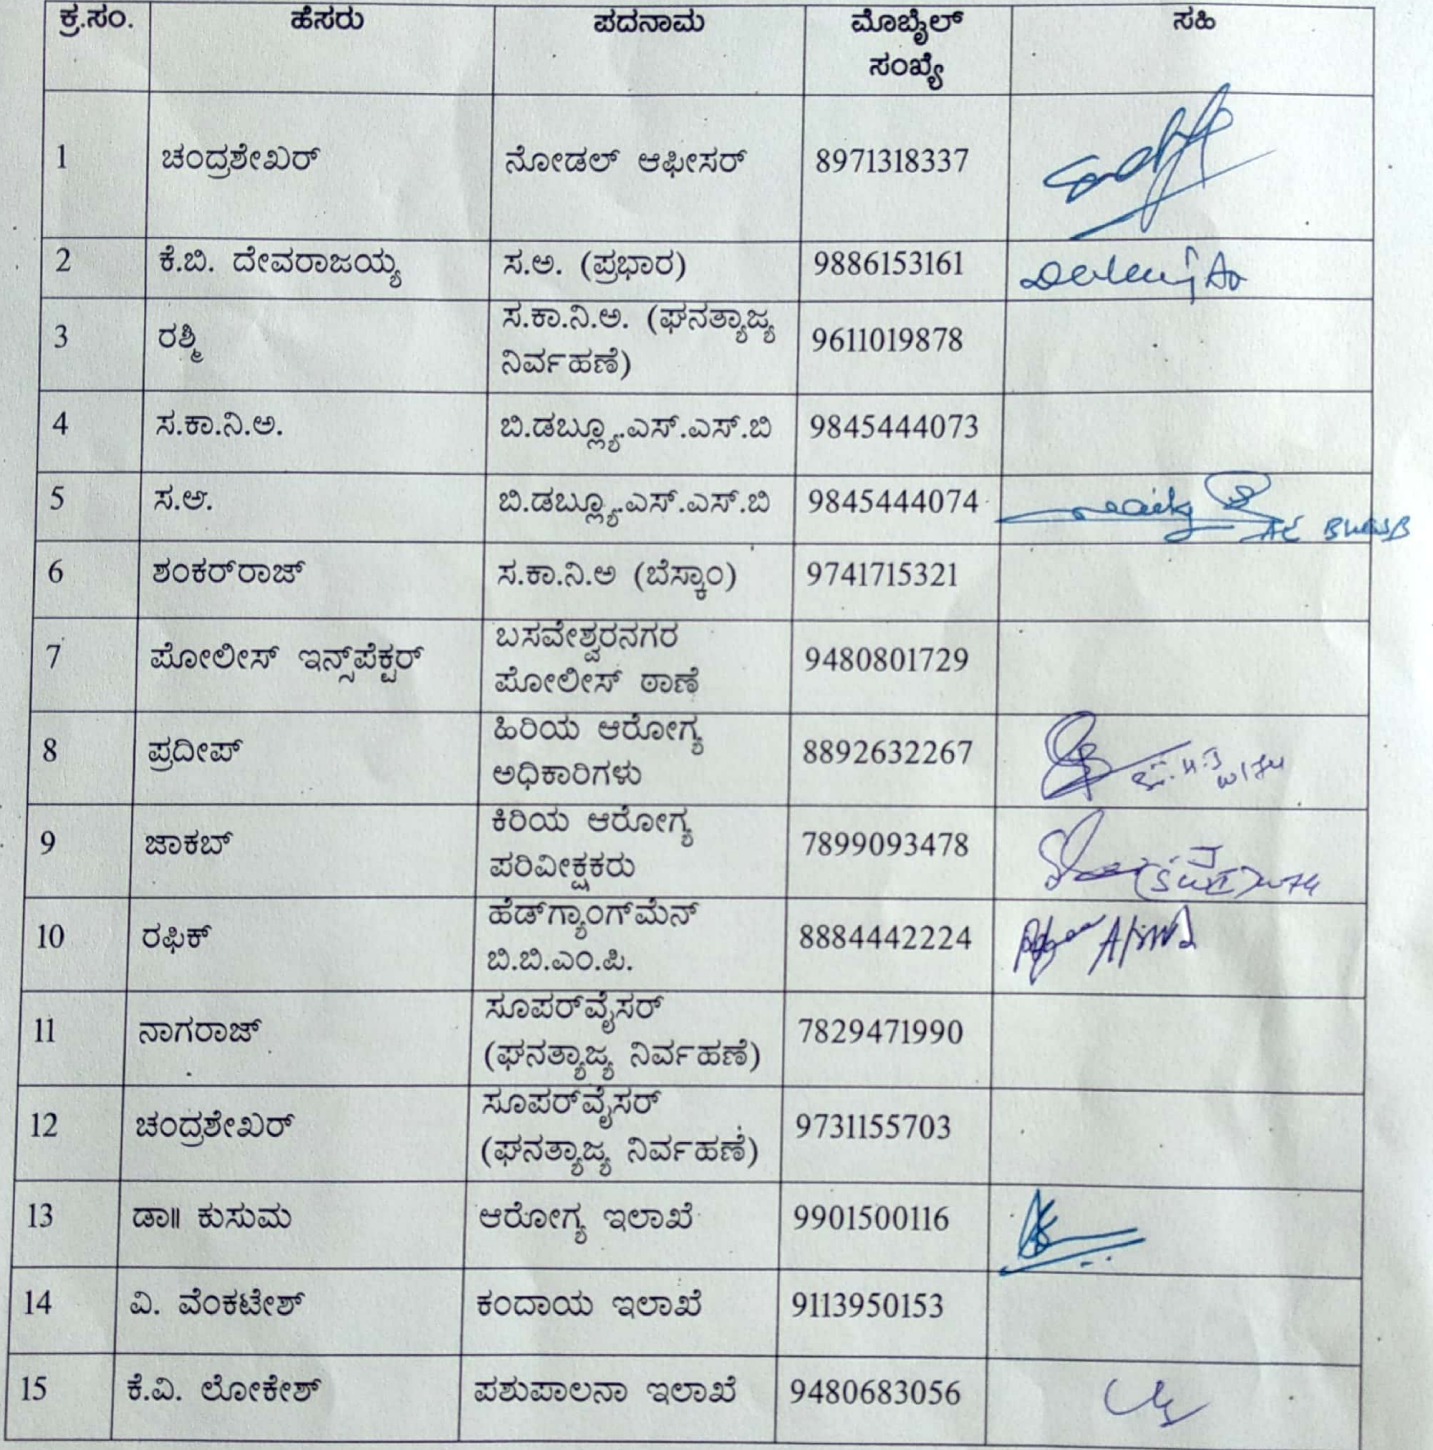 ಕ್ರ.ಸಂ. ಹೆಸರು ಪದನಾಮ ಮೊಬೈಲ್ ಸಂಖ್ಯೆ ಸಹಿ
1 ಚಂದ್ರಶೇಖರ್ ನೋಡಲ್ ಆಫೀಸರ್ 8971318337
2 ಕೆ.ಬಿ. ದೇವರಾಜಯ್ಯ ಸ.ಅ. (ಪ್ರಭಾರ) 9886153161
3 ರಶ್ಮಿ ಸ.ಕಾ.ನಿ.ಅ. (ಘನತ್ಯಾಜ್ಯ
ನಿರ್ವಹಣೆ) 9611019878
4 ಸ.ಕಾ.ನಿ.ಅ. ಬಿ.ಡಬ್ಲ್ಯೂ.ಎಸ್.ಎಸ್.ಬಿ 9845444073
5 ಸ.ಅ. ಬಿ.ಡಬ್ಲ್ಯೂ.ಎಸ್.ಎಸ್.ಬಿ 9845444074
6 ಶಂಕರ್‌ರಾಜ್ ಸ.ಕಾ.ನಿ.ಅ (ಬೆಸ್ಕಾಂ) 9741715321
7 ಪೋಲೀಸ್ ಇನ್ಸ್‌ಪೆಕ್ಟರ್ ಬಸವೇಶ್ವರನಗರ
ಪೋಲೀಸ್ ಠಾಣೆ 9480801729
8 ಪ್ರದೀಪ್ ಹಿರಿಯ ಆರೋಗ್ಯ
ಅಧಿಕಾರಿಗಳು 8892632267
9 ಜಾಕಬ್ ಕಿರಿಯ ಆರೋಗ್ಯ
ಪರಿವೀಕ್ಷಕರು 7899093478
10 ರಫಿಕ್ ಹೆಡ್‌ಗ್ಯಾಂಗ್‌ಮೆನ್
ಬಿ.ಬಿ.ಎಂ.ಪಿ. 8884442224
11 ನಾಗರಾಜ್ ಸೂಪರ್‌ವೈಸರ್
(ಘನತ್ಯಾಜ್ಯ ನಿರ್ವಹಣೆ) 7829471990
12 ಚಂದ್ರಶೇಖರ್ ಸೂಪರ್‌ವೈಸರ್
(ಘನತ್ಯಾಜ್ಯ ನಿರ್ವಹಣೆ) 9731155703
13 ಡಾ॥ ಕುಸುಮ ಆರೋಗ್ಯ ಇಲಾಖೆ 9901500116
14 ವಿ. ವೆಂಕಟೇಶ್ ಕಂದಾಯ ಇಲಾಖೆ 9113950153
15 ಕೆ.ವಿ. ಲೋಕೇಶ್ ಪಶುಪಾಲನಾ ಇಲಾಖೆ 9480683056